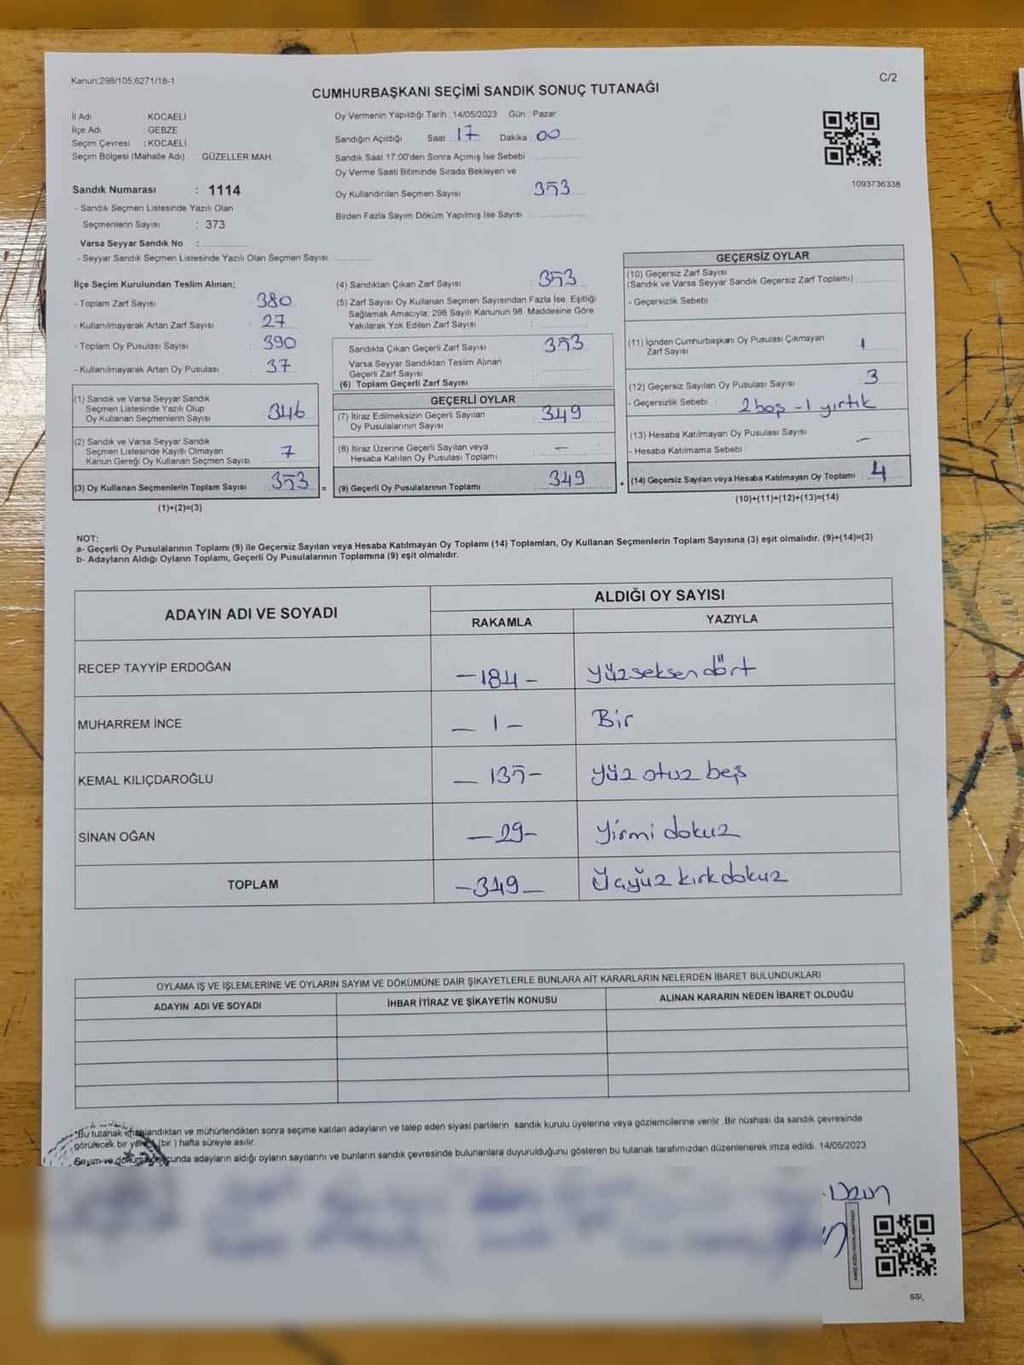 Kanun;298/105,6271/18-1
C/2
CUMHURBAŞKANI SEÇİMİ SANDIK SONUÇ TUTANAĞI
İl Adı : KOCAELİ
İlçe Adı : GEBZE
Seçim Çevresi : KOCAELİ
Seçim Bölgesi (Mahalle Adı) GÜZELLER MAH.
Sandık Numarası : 1114
- Sandık Seçmen Listesinde Yazılı Olan
Seçmenlerin Sayısı : 373
Varsa Seyyar Sandık No :
- Seyyar Sandık Seçmen Listesinde Yazılı Olan Seçmen Sayısı:
Oy Vermenin Yapıldığı Tarih : 14/05/2023 Gün : Pazar
Sandığın Açıldığı Saat : 17 Dakika : 00
Sandık Saat 17:00'den Sonra Açımış İse Sebebi
Oy Verme Saati Bitiminde Sırada Bekleyen ve
Oy Kullandırılan Seçmen Sayısı 353
Birden Fazla Sayım Döküm Yapılmış İse Sayısı :
1093736338
İlçe Seçim Kurulundan Teslim Alınan;
- Toplam Zarf Sayısı 380
- Kullanılmayarak Artan Zarf Sayısı 27
- Toplam Oy Pusulası Sayısı 390
- Kullanılmayarak Artan Oy Pusulası 37
(1) Sandık ve Varsa Seyyar Sandık
Seçmen Listesinde Yazılı Olup
Oy Kullanan Seçmenlerin Sayısı 346
(2) Sandık ve Varsa Seyyar Sandık
Seçmen Listesinde Kayıtlı Olmayan
Kanun Gereği Oy Kullanan Seçmen Sayısı 7
(3) Oy Kullanan Seçmenlerin Toplam Sayısı 353 =
(1)+(2)=(3)
(4) Sandıktan Çıkan Zarf Sayısı : 353
(5) Zarf Sayısı Oy Kullanan Seçmen Sayısından Fazla İse, Eşitliği
Sağlamak Amacıyla; 298 Sayılı Kanunun 98. Maddesine Göre
Yakılarak Yok Edilen Zarf Sayısı
Sandıkta Çıkan Geçerli Zarf Sayısı 353
Varsa Seyyar Sandıktan Teslim Alınan
Geçerli Zarf Sayısı
(6) Toplam Geçerli Zarf Sayısı
GEÇERLİ OYLAR
(7) İtiraz Edilmeksizin Geçerli Sayılan
Oy Pusulalarının Sayısı 349
(8) İtiraz Üzerine Geçerli Sayılan veya
Hesaba Katılan Oy Pusulası Toplamı —
(9) Geçerli Oy Pusulalarının Toplamı 349 +
GEÇERSİZ OYLAR
(10) Geçersiz Zarf Sayısı
(Sandık ve Varsa Seyyar Sandık Geçersiz Zarf Toplamı)
- Geçersizlik Sebebi
(11) İçinden Cumhurbaşkanı Oy Pusulası Çıkmayan
Zarf Sayısı 1
(12) Geçersiz Sayılan Oy Pusulası Sayısı 3
- Geçersizlik Sebebi : 2 boş - 1 yırtık
(13) Hesaba Katılmayan Oy Pusulası Sayısı —
- Hesaba Katılmama Sebebi
(14) Geçersiz Sayılan veya Hesaba Katılmayan Oy Toplamı 4
(10)+(11)+(12)+(13)=(14)
NOT:
a- Geçerli Oy Pusulalarının Toplamı (9) ile Geçersiz Sayılan veya Hesaba Katılmayan Oy Toplamı (14) Toplamları, Oy Kullanan Seçmenlerin Toplam Sayısına (3) eşit olmalıdır. (9)+(14)=(3)
b- Adayların Aldığı Oyların Toplamı, Geçerli Oy Pusulalarının Toplamına (9) eşit olmalıdır.
ADAYIN ADI VE SOYADI
ALDIĞI OY SAYISI
RAKAMLA YAZIYLA
RECEP TAYYİP ERDOĞAN — 184 — Yüzseksen dört
MUHARREM İNCE — 1 — Bir
KEMAL KILIÇDAROĞLU — 135 — Yüz otuz beş
SİNAN OĞAN — 29 — Yirmi dokuz
TOPLAM — 349 — Üçyüz kırk dokuz
OYLAMA İŞ VE İŞLEMLERİNE VE OYLARIN SAYIM VE DÖKÜMÜNE DAİR ŞİKAYETLERLE BUNLARA AİT KARARLARIN NELERDEN İBARET BULUNDUKLARI
ADAYIN ADI VE SOYADI İHBAR İTİRAZ VE ŞİKAYETİN KONUSU ALINAN KARARIN NEDEN İBARET OLDUĞU
*Bu tutanak imzalandıktan ve mühürlendikten sonra seçime katılan adayların ve talep eden siyasi partilerin sandık kurulu üyelerine veya gözlemcilerine verilir. Bir nüshası da sandık çevresinde
görülecek bir yere 1 (bir ) hafta süreyle asılır.
Sayım ve döküm sonucunda adayların aldığı oyların sayılarını ve bunların sandık çevresinde bulunanlara duyurulduğunu gösteren bu tutanak tarafımızdan düzenlenerek imza edildi. 14/05/2023
SSI,